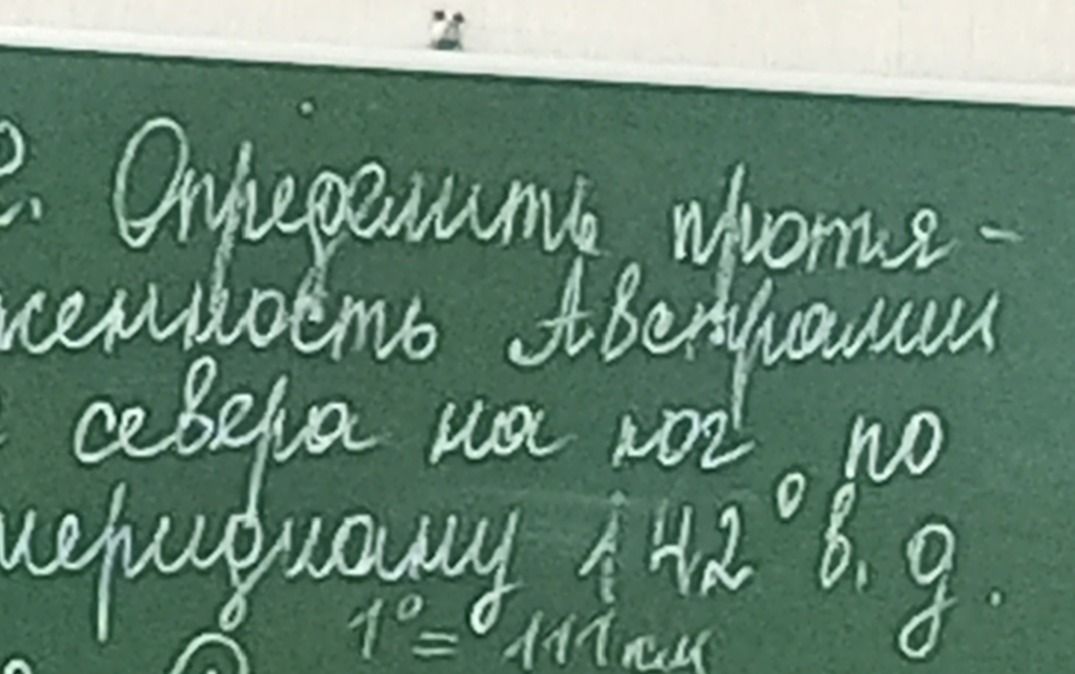 2. Определить протя-
женность Австралии
с севера на юг по
меридиану 142° в. д.
1° = 111 км